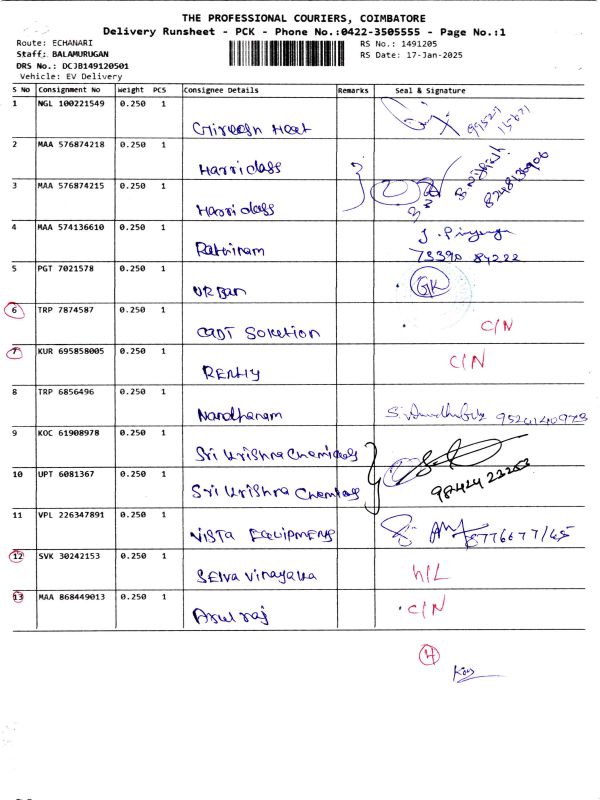 THE PROFESSIONAL COURIERS, COIMBATORE
Delivery Runsheet - PCK - Phone No.:0422-3505555 - Page No.:1
Route: ECHANARI RS No.: 1491205
Staff: BALAMURUGAN RS Date: 17-Jan-2025
DRS No.: DCJB149120501
Vehicle: EV Delivery
S No Consignment No Weight PCS Consignee Details Remarks Seal & Signature
1 NGL 100221549 0.250 1
2 MAA 576874218 0.250 1 Harri class
3 MAA 576874215 0.250 1 Harri class
8248136906
4 MAA 574136610 0.250 1 Rathinam
73390 84222
5 PGT 7021578 0.250 1 URBan GK
6 TRP 7874587 0.250 1 CADT C/N
7 KUR 695858005 0.250 1 C/N
8 TRP 6856496 0.250 1 Nandhanam 9524140973
9 KOC 61908978 0.250 1 Sri Krishna Chemicals
10 UPT 6081367 0.250 1 Sri Krishna Chemicals
98424 23263
11 VPL 226347891 0.250 1 VISTA EQUIPMENS
12 SVK 30242153 0.250 1 SElva vinayaka h/L
13 MAA 868449013 0.250 1 Arul raj C/N
4